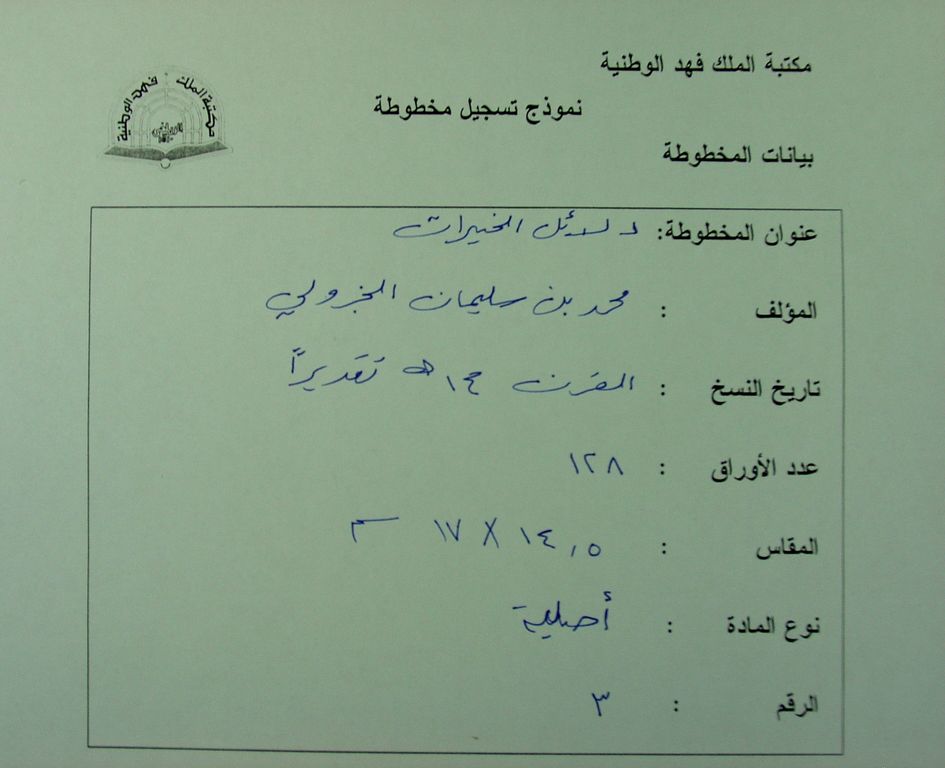 مكتبة الملك فهد الوطنية
نموذج تسجيل مخطوطة
مكتبة الملك فهد الوطنية
الرياض
بيانات المخطوطة
عنوان المخطوطة: دلائل الخيرات
المؤلف : محمد بن سليمان الجزولي
تاريخ النسخ : القرن ١٣ هـ تقديراً
عدد الأوراق : ١٢٨
المقاس : ١٤,٥ X ١٧ سم
نوع المادة : أصلية
الرقم : ٣